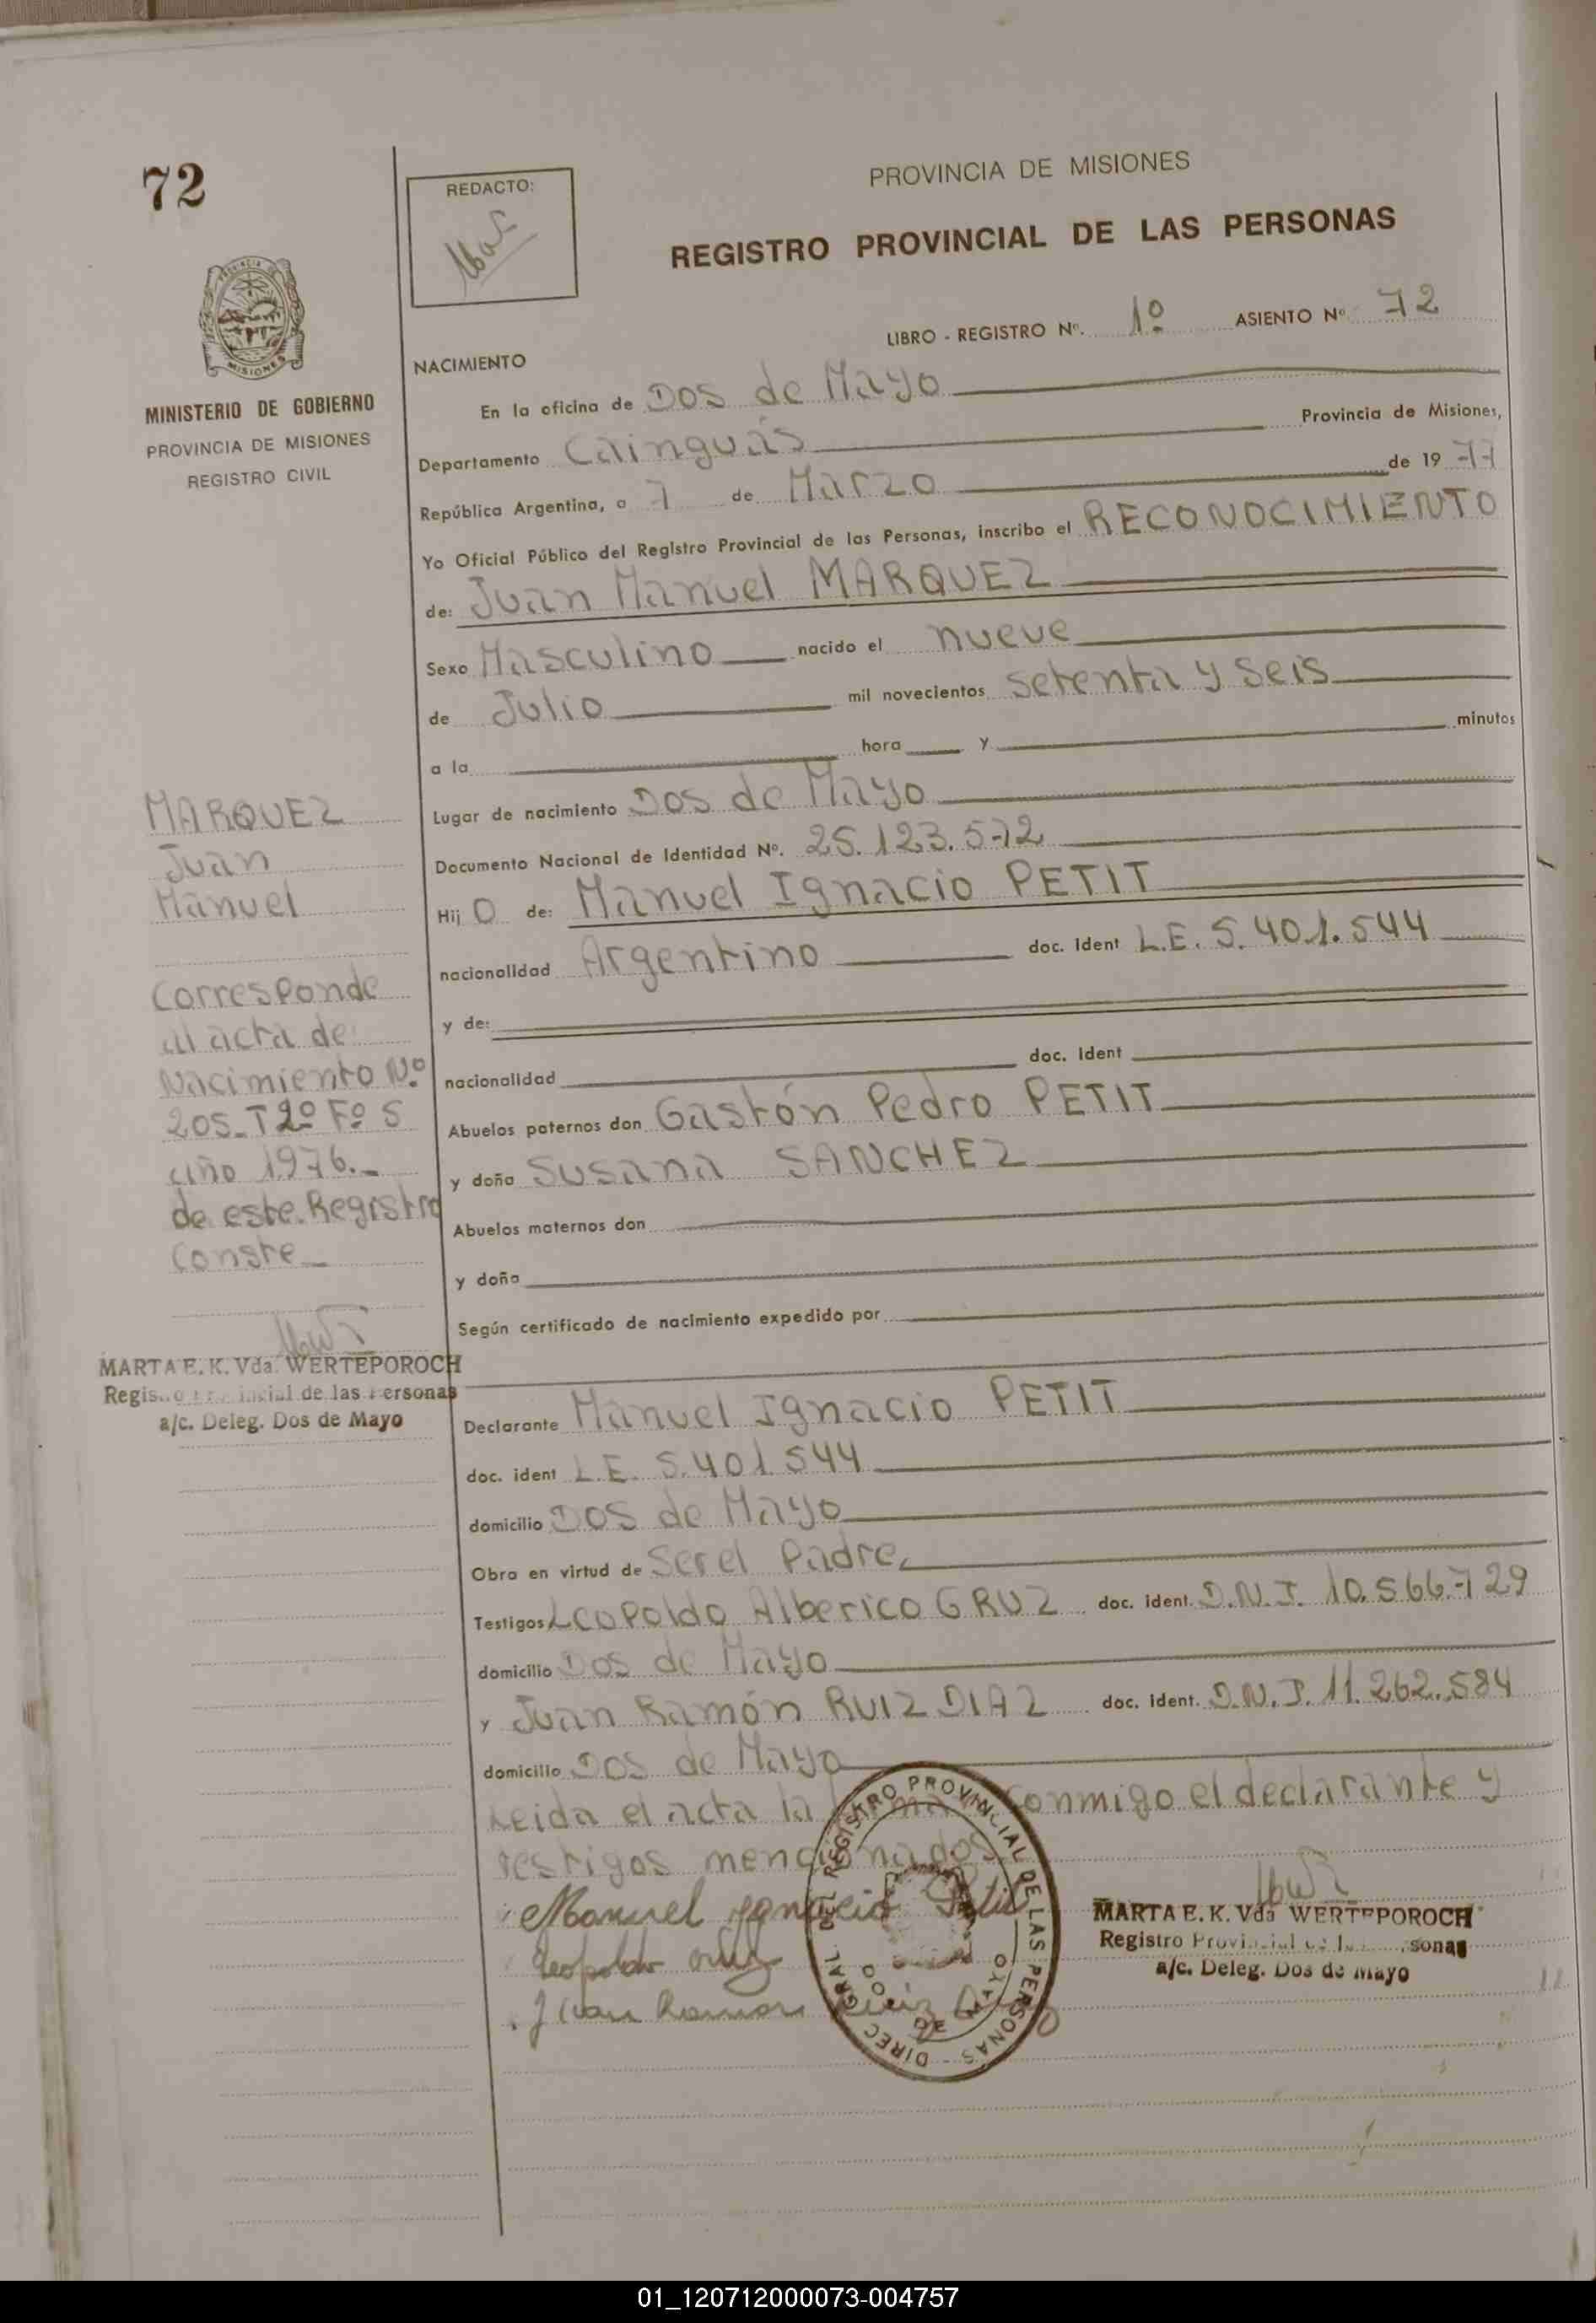 72
REDACTO:
PROVINCIA DE MISIONES
REGISTRO PROVINCIAL DE LAS PERSONAS
LIBRO - REGISTRO Nº. 1º ASIENTO Nº 72
PROVINCIA DE
MISIONES
MINISTERIO DE GOBIERNO
PROVINCIA DE MISIONES
REGISTRO CIVIL
NACIMIENTO
En la oficina de Dos de Mayo
Departamento Cainguás Provincia de Misiones,
República Argentina, a 7 de Marzo de 1977
Yo Oficial Público del Registro Provincial de las Personas, inscribo el RECONOCIMIENTO
de: Juan Manuel MARQUEZ
Sexo Masculino nacido el nueve
de Julio mil novecientos setenta y seis
a la hora y minutos
Lugar de nacimiento Dos de Mayo
Documento Nacional de Identidad Nº. 25.123.572
Hij o de: Manuel Ignacio PETIT
nacionalidad Argentino doc. ident L.E. 5.401.544
y de:
nacionalidad doc. ident
Abuelos paternos don Gastón Pedro PETIT
y doña Susana SANCHEZ
Abuelos maternos don
y doña
Según certificado de nacimiento expedido por
Declarante Manuel Ignacio PETIT
doc. ident L.E. 5.401.544
domicilio Dos de Mayo
Obra en virtud de Ser el Padre
Testigos Leopoldo Alberico GRUZ doc. ident. D.N.I. 10.566.729
domicilio Dos de Mayo
y Juan Ramón RUIZ DIAZ doc. ident. D.N.I. 11.262.584
domicilio Dos de Mayo
Leida el acta la conmigo el declarante y
testigos mencionados
Manuel Ignacio Petit
Leopoldo
Juan Ramon Ruiz
DIREC. GRAL. DEL REGISTRO PROVINCIAL DE LAS PERSONAS
DOS DE MAYO
MARTA E. K. Vda WERTEPOROCH
Registro Provincial de las Personas
a/c. Deleg. Dos de Mayo
MARQUEZ
Juan
Manuel
Corresponde
al acta de
Nacimiento Nº
205_T 2º Fº 5
año 1976._
de este Registro
Conste_
MARTA E. K. Vda. WERTEPOROCH
Registro Provincial de las Personas
a/c. Deleg. Dos de Mayo
01_120712000073-004757